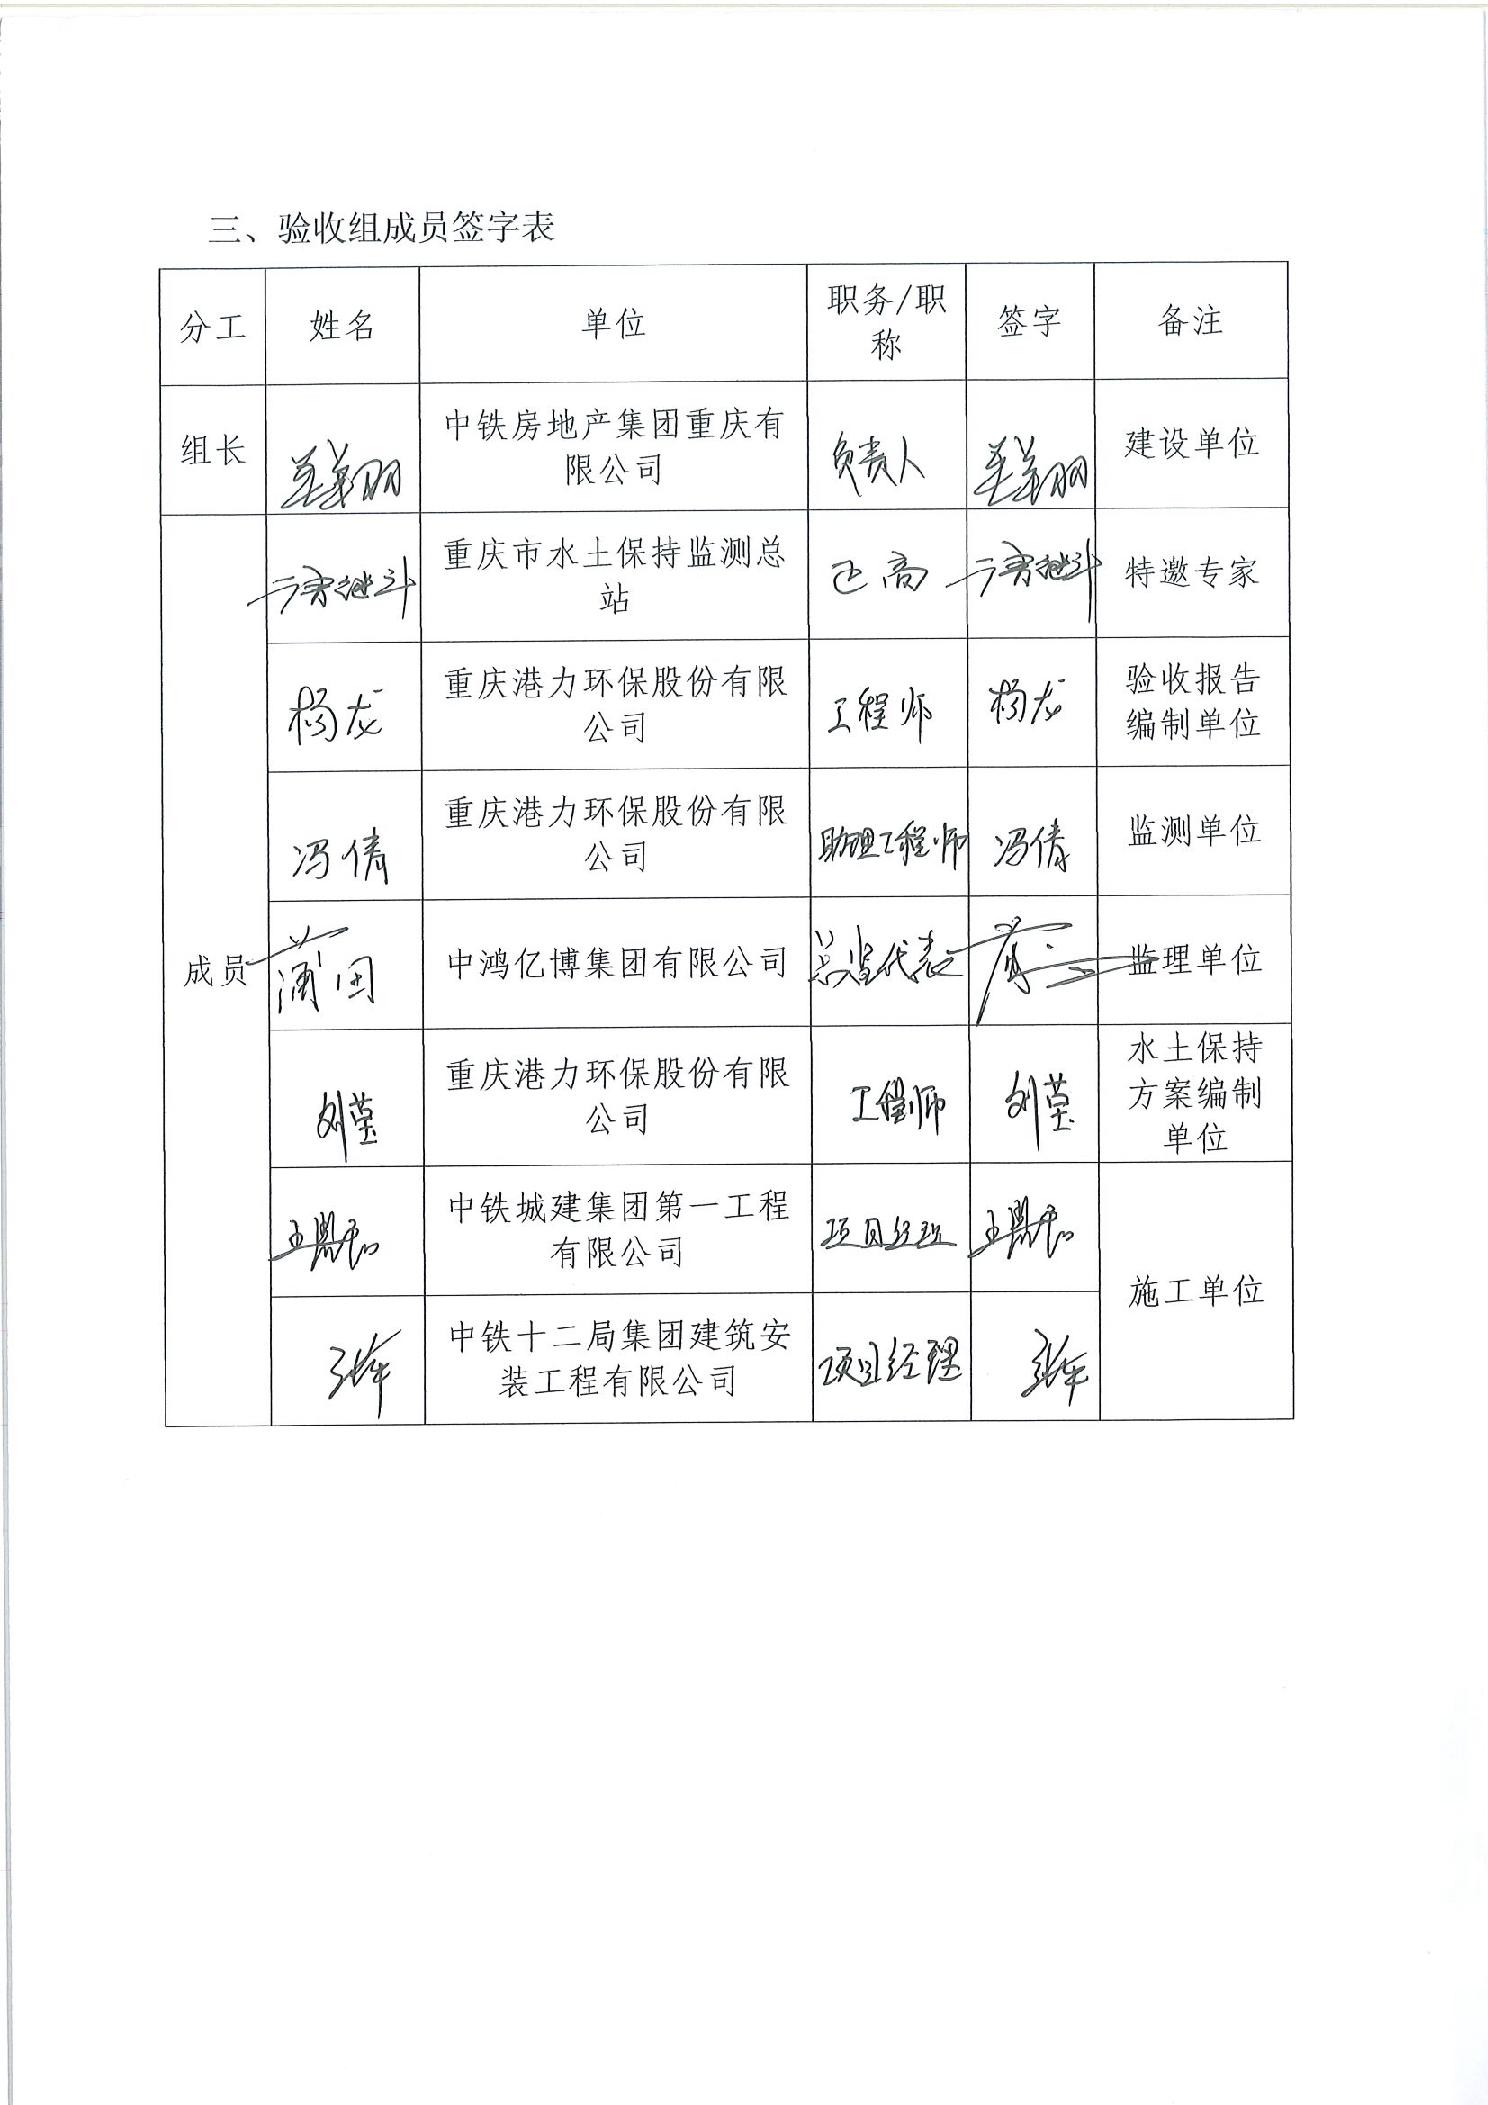 三、验收组成员签字表
分工 姓名 单位 职务/职称 签字 备注
组长 中铁房地产集团重庆有限公司 负责人 建设单位
成员
重庆市水土保持监测总站 正高 特邀专家
杨龙 重庆港力环保股份有限公司 工程师 杨龙 验收报告编制单位
冯倩 重庆港力环保股份有限公司 助理工程师 冯倩 监测单位
蒲田 中鸿亿博集团有限公司 总监代表 监理单位
重庆港力环保股份有限公司 工程师 水土保持方案编制单位
中铁城建集团第一工程有限公司 项目经理 施工单位
中铁十二局集团建筑安装工程有限公司 项目经理